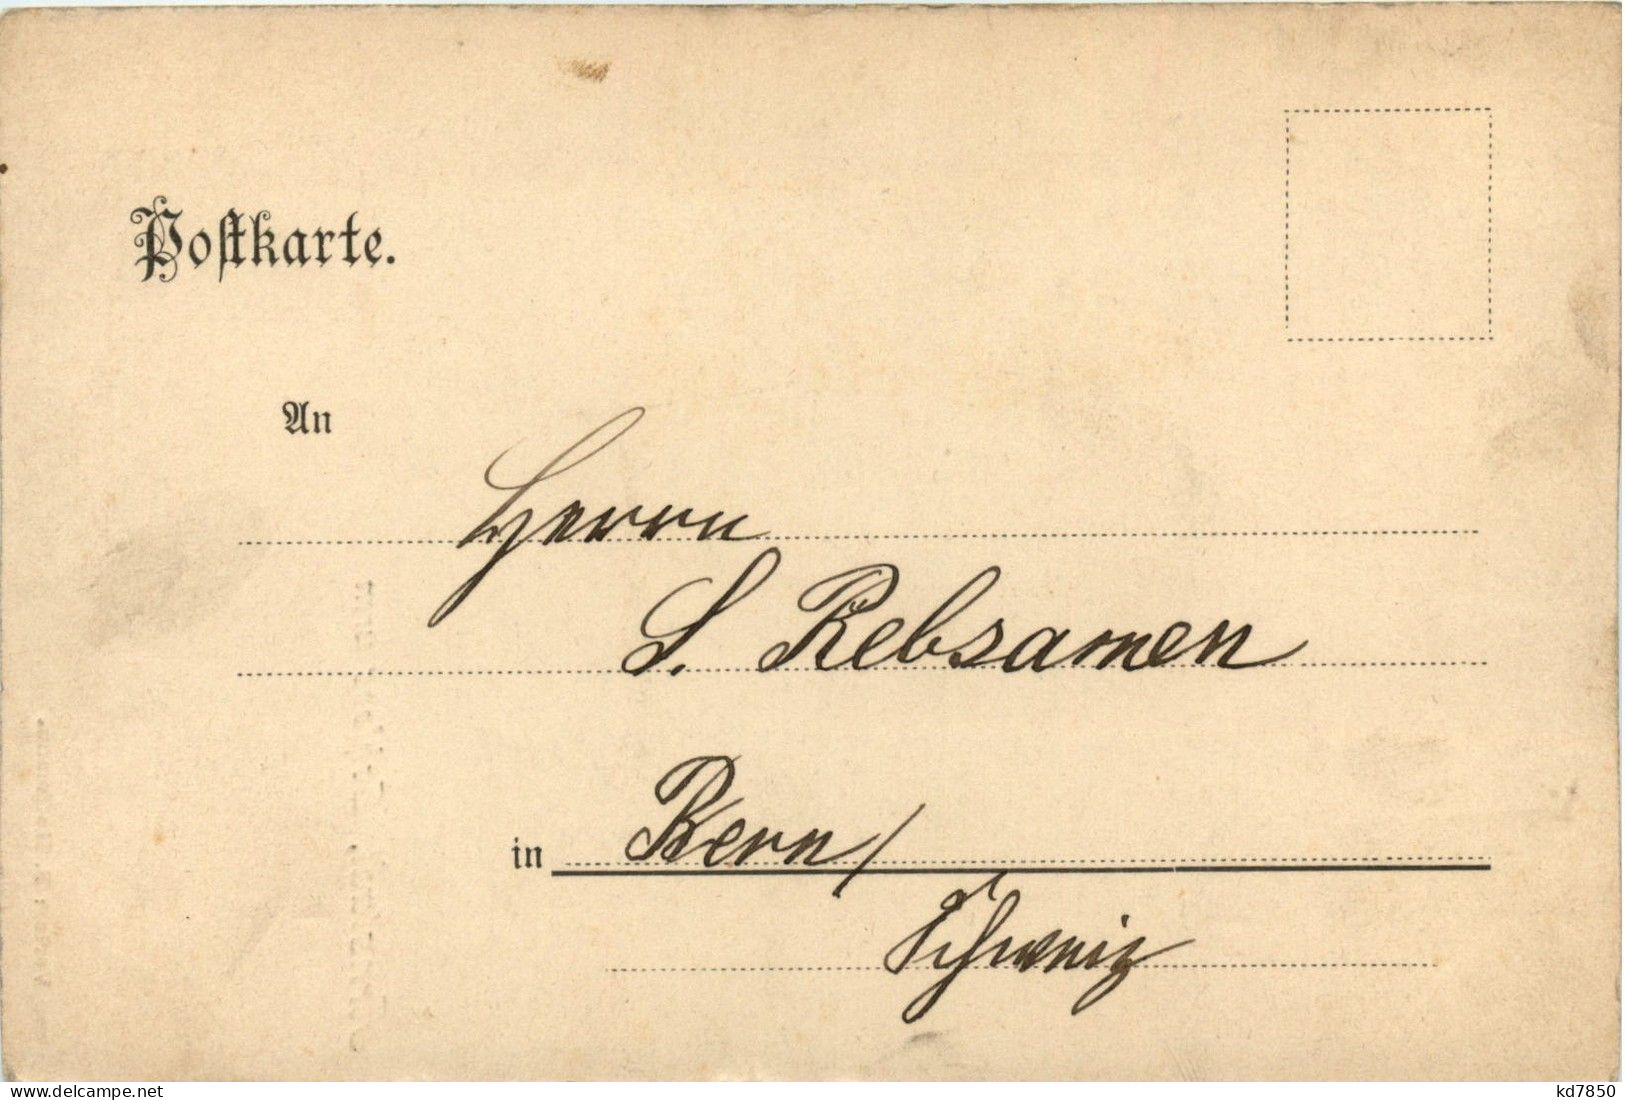 Postkarte.
An
Herrn
S. Rebsamen
in Bern/
Schweiz
www.delcampe.net
kd7850